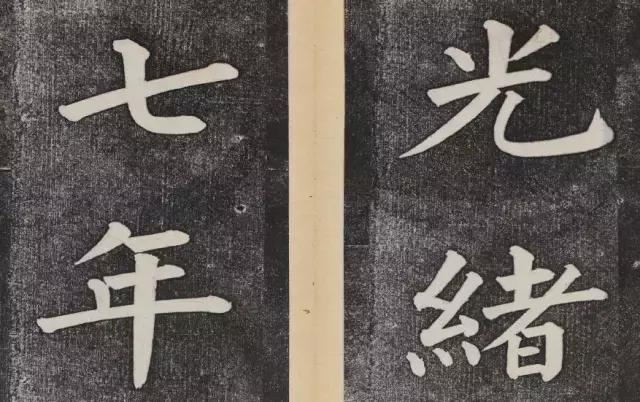 光緒
七年